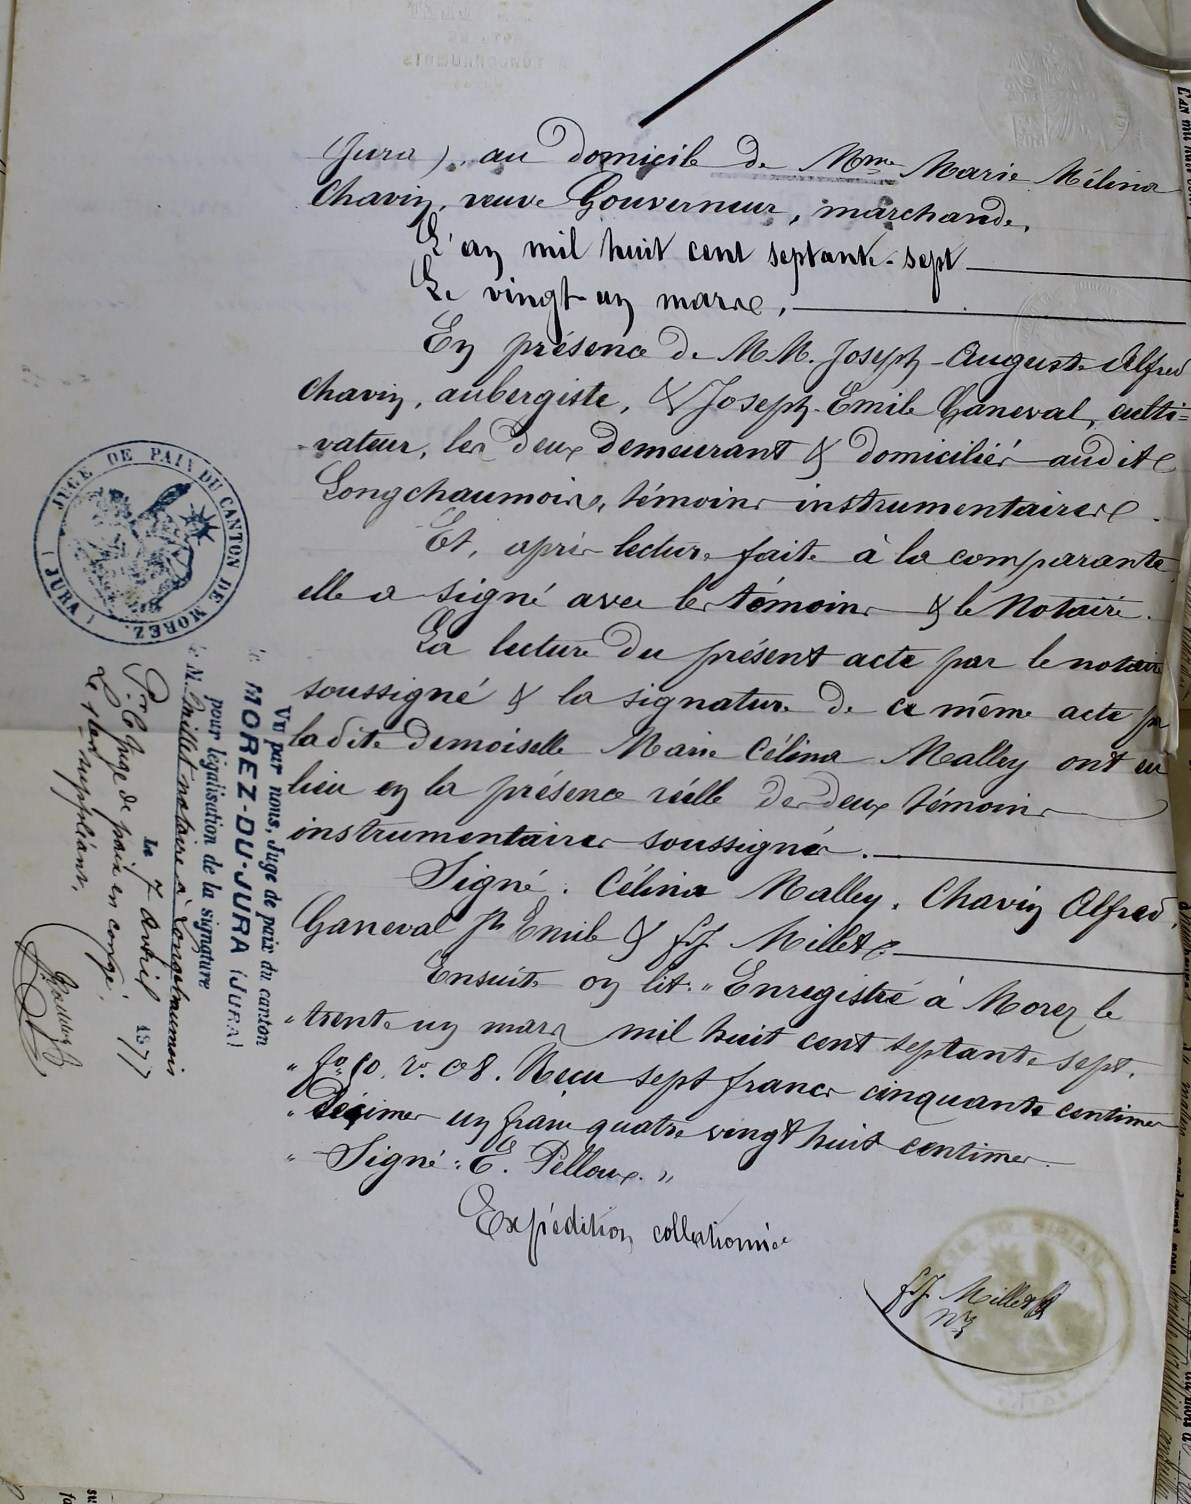 (Jura), au domicile de Mme Marie Mélina
Chavin, veuve Gouverneur, marchande,
L'an mil huit cent septante-sept
Le vingt-un mars,
En présence de MM. Joseph-Auguste Alfred
Chavin, aubergiste, & Joseph-Emile Ganeval, culti=
-vateur, les deux demeurant & domiciliés audit
Longchaumois, témoins instrumentaires.
Et, après lecture faite à la comparante,
elle a signé avec les témoins & le Notaire.
La lecture du présent acte par le notaire
soussigné & la signature de ce même acte par
ladite demoiselle Marie Célina Malley ont eu
lieu en la présence réelle des deux témoins
instrumentaires soussignés.
Signé : Célina Malley, Chavin Alfred,
Ganeval Jh Emile & ff Millet
Ensuite on lit : "Enregistré à Morez le
" trente un mars mil huit cent septante sept.
" fo. 80. Vo. C 8. Reçu sept francs cinquante centimes
" Décimes un franc quatre vingt huit centimes.
" Signé : E. Pelloux."
Expédition collationnée
ff Millet
Nre
JUGE DE PAIX DU CANTON DE MOREZ. (JURA)
Vu par nous, Juge de paix du canton
de MOREZ-DU-JURA (JURA)
pour légalisation de la signature
de M. Millet notaire à Longchaumois
Le 7 Avril 1877
Pr le Juge de paix en congé,
Le 1er suppléant,